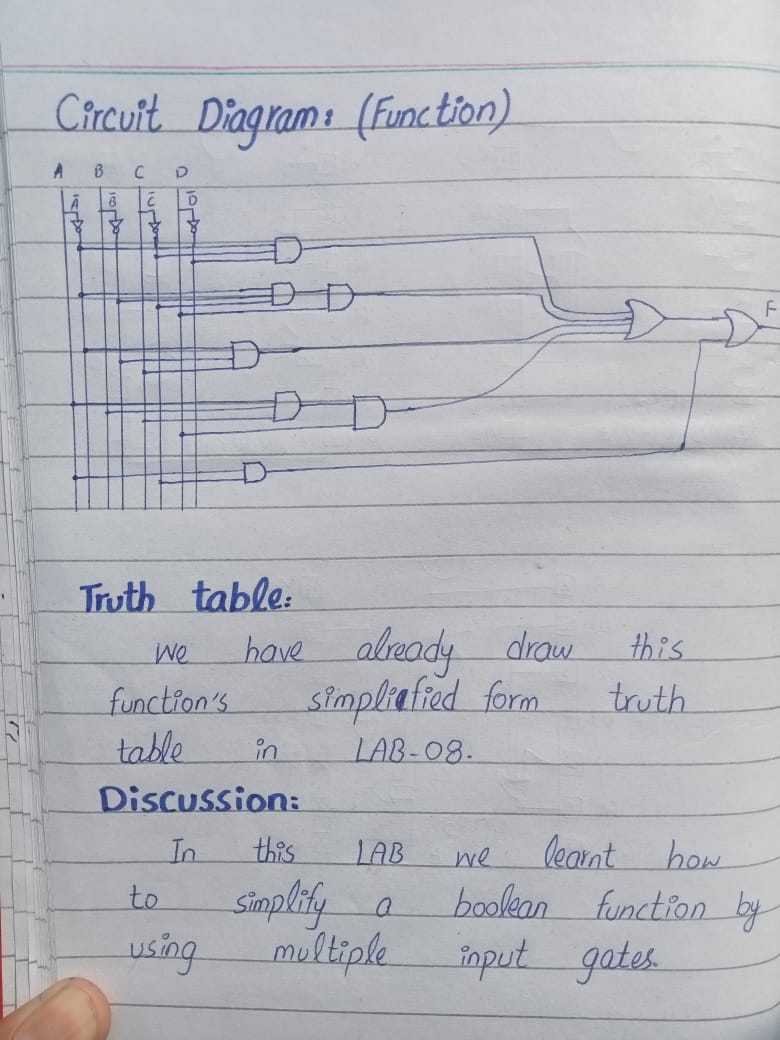 Circuit Diagram: (Function)
A B C D
Ā B̄ C̄ D̄
F
Truth table:
We have already draw this
function's simplified form truth
table in LAB-08.
Discussion:
In this LAB we learnt how
to simplify a boolean function by
using multiple input gates.